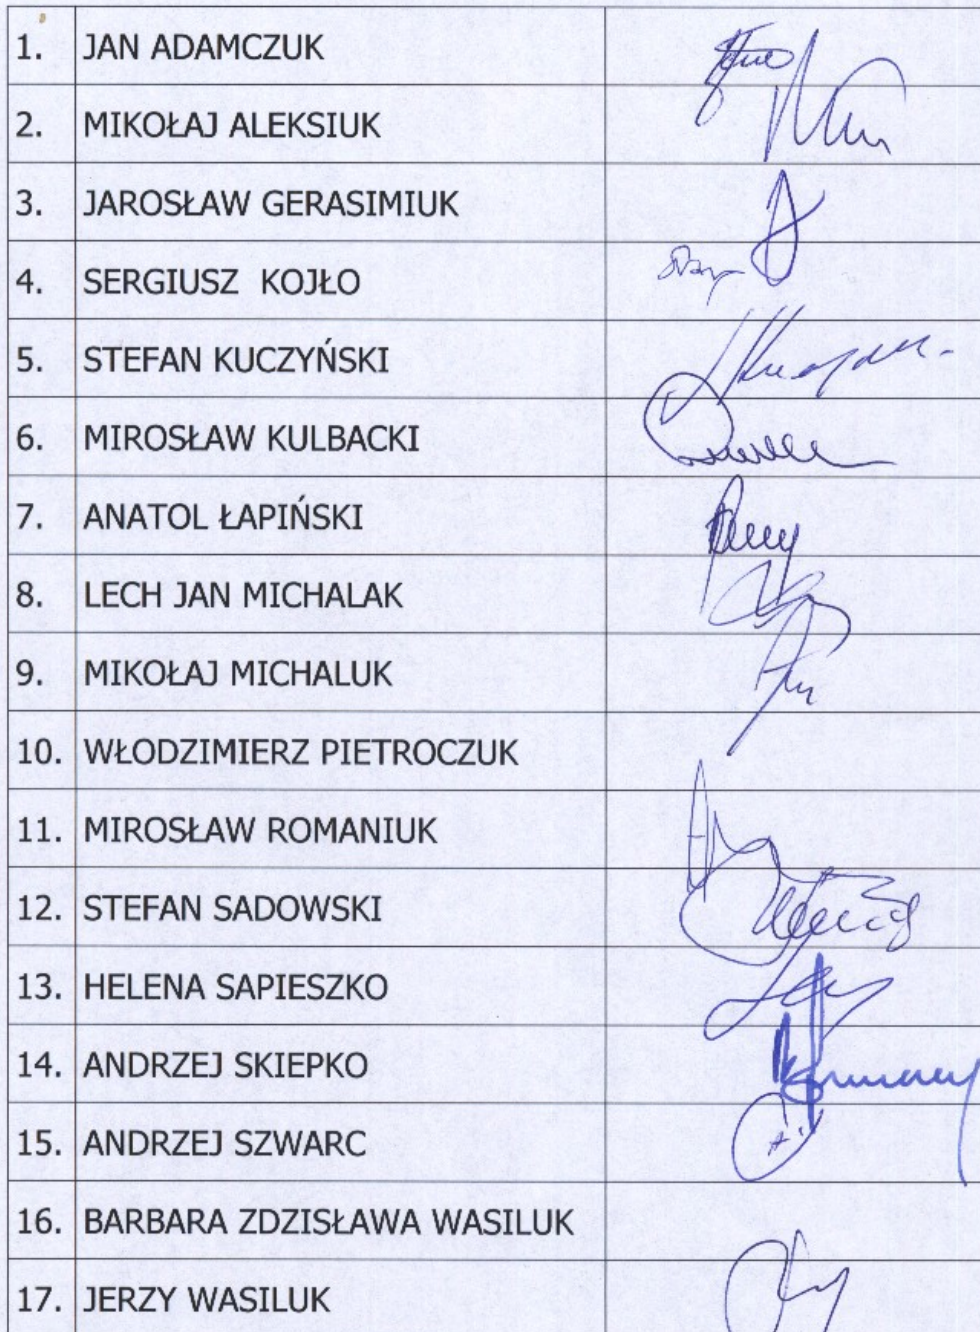 1. JAN ADAMCZUK
2. MIKOŁAJ ALEKSIUK
3. JAROSŁAW GERASIMIUK
4. SERGIUSZ KOJŁO
5. STEFAN KUCZYŃSKI
6. MIROSŁAW KULBACKI
7. ANATOL ŁAPIŃSKI
8. LECH JAN MICHALAK
9. MIKOŁAJ MICHALUK
10. WŁODZIMIERZ PIETROCZUK
11. MIROSŁAW ROMANIUK
12. STEFAN SADOWSKI
13. HELENA SAPIESZKO
14. ANDRZEJ SKIEPKO
15. ANDRZEJ SZWARC
16. BARBARA ZDZISŁAWA WASILUK
17. JERZY WASILUK